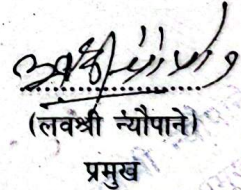 (लवश्री न्यौपाने)
प्रमुख